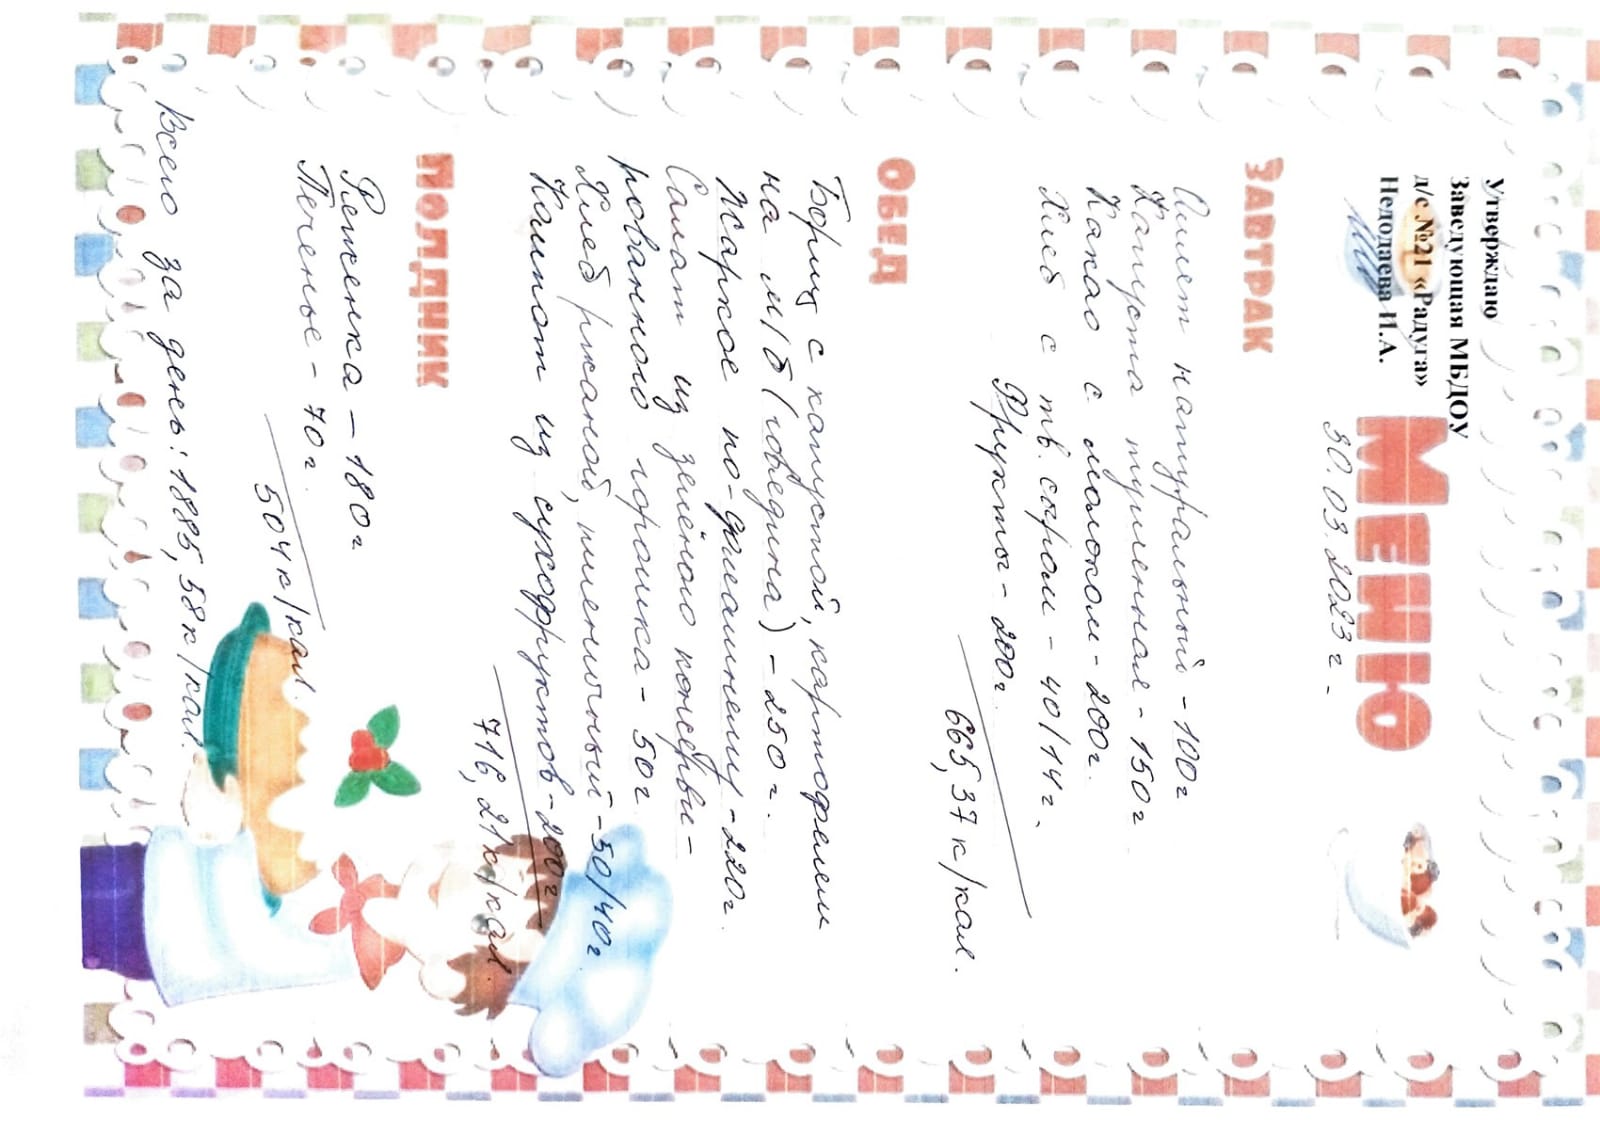 Утверждаю
Заведующая МБДОУ
д/с №21 «Радуга»
Недодаева И.А.
МЕНЮ
30.03.2023 г.
ЗАВТРАК
Омлет натуральный - 100г
Капуста тушенная - 150г
Какао с молоком - 200г.
Хлеб с тв. сыром - 40/14г.
Фрукты - 200г.
665,37 к/кал.
ОБЕД
Борщ с капустой, картофелем
на м/б (говядина) - 250г.
Жаркое по-домашнему - 220г.
Салат из зелёного консерви-
рованного горошка - 50г.
Хлеб ржаной, пшеничный - 50/40г.
Компот из сухофруктов - 200г
716,21 к/кал.
ПОЛДНИК
Ряженка - 180г
Печенье - 70г.
504 к/кал.
Всего за день: 1885,58 к/кал.